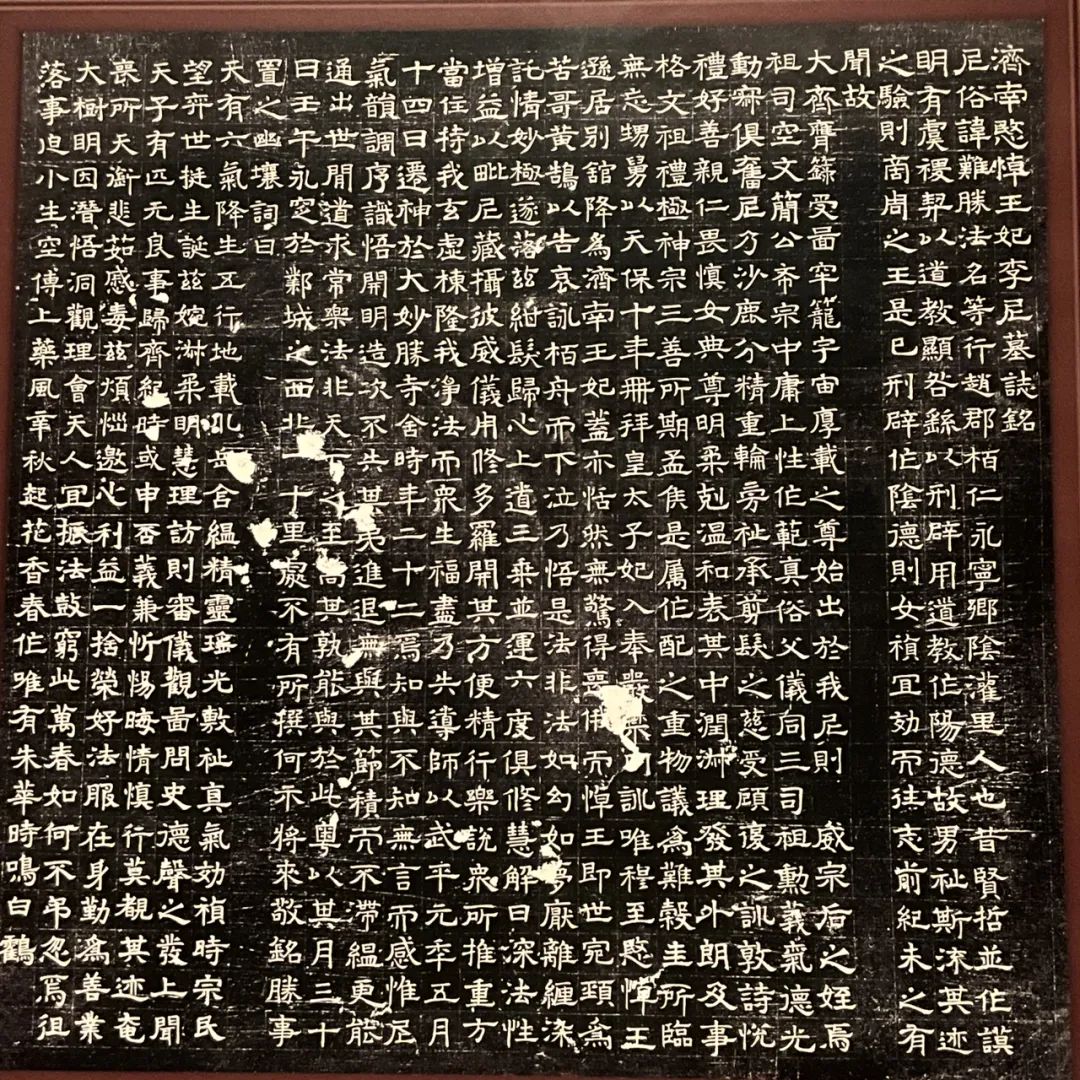 濟南愍悼王妃李尼墓誌銘
尼俗諱難勝法名等行趙郡栢仁永寧鄉陰灌里人也昔賢哲並作謨
明有虞稷契以道教顯咎繇以刑辟用道教作陽德故男祉斯流其迹
之驗則商周之王是已刑辟作陰德則女禎宜効而往志前紀未之有
聞故
大齊膺籙受啚牢籠宇宙厚載之尊始出於我尼則 威宗后之姪焉
祖司空文簡公希宗中庸上性作範真俗父儀同三司祖勳義氣德光
動寀俱奮尼乃沙鹿分精重輪旁祉承剪髮之慈受顧復之訓敦詩悅
禮好善親仁畏慎女典尊明柔剋溫和表其中潤淑理發其外朗及事
格文祖禮極神宗三善所期孟侯是属作配之重物議為難穀圭所臨
無忘甥舅以天保十年冊拜皇太子妃入奉嚴 訓唯稷至愍悼王
遜居別館降為濟南王妃蓋亦恬然無驚得喪俄而悼王即世宛頸為
苦哥黃鵠以告哀詠栢舟而下泣乃悟是法非法如幻如夢厭離纏染
託情妙極遂落茲紺髮歸心上道三乘並運六度俱修慧解日深法性
增益以毗尼藏攝彼威儀用修多羅開其方便精行樂說眾所推重方
當住持我玄虛棟隆我淨法而眾生福盡乃失導師以武平元年五月
十四日遷神於大妙勝寺舍時年二十二焉知與不知無言而感惟尼
氣韻調序識悟開明造次不失其 進退無與其節積而不滯縕更能
通出世間道求常樂法非天 之至高其孰能與於此粵以其月三十
日壬午永窆於鄴城之西北十里處不有所撰何示將來敬銘勝事
置之幽壤詞曰
天有六氣降生五行地載 岳含縕精靈瑤光敷祉真氣効禎時宗民
望弈世挺生誕茲婉淑柔明慧理訪則審儀觀啚問史德聲之發上聞
天子有匹元良事歸齊紀時或申否義兼忻惕晦情慎行莫覩其迹奄
喪所天銜悲茹感毒茲煩惱邀心利益一捨榮好法服在身勤為善業
大樹明因潛悟洞觀理會天人宜振法鼓窮此萬春如何不弔忽焉徂
落事迫小生空傳上藥風幸秋起花香春作唯有朱華時鳴白鶴